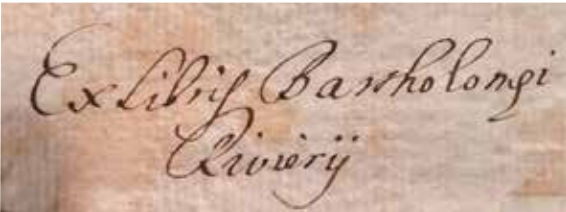 Ex Libris Bartholomęi
Rivierij